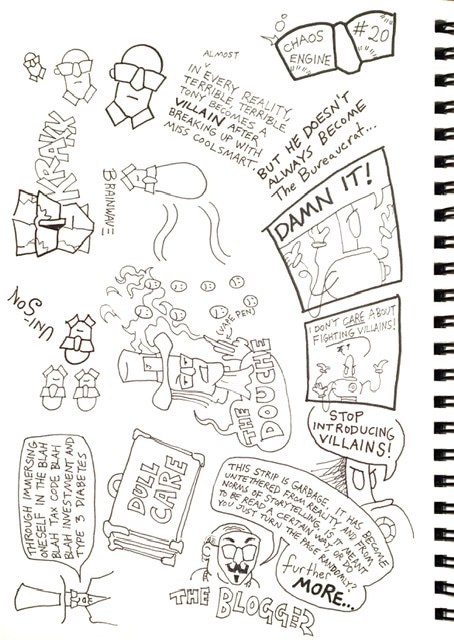 CHAOS
ENGINE
#20
ALMOST
IN EVERY REALITY,
TERRIBLE, TERRIBLE
TONY BECOMES A
VILLAIN AFTER
BREAKING UP WITH
MISS COOLSMART.
BUT HE DOESN'T
ALWAYS BECOME
The Bureaucrat...
KRAKK
BRAINWAVE
DAMN IT!
UNI-
SON
(VAPE PEN)
THE
DOUCHE
I DON'T CARE ABOUT
FIGHTING VILLAINS!
STOP
INTRODUCING
VILLAINS!
THROUGH IMMERSING
ONESELF IN THE BLAH
BLAH TAX CODE BLAH
BLAH INVESTMENT AND
TYPE 3 DIABETES
DULL
CARE
THIS STRIP IS GARBAGE. IT HAS BECOME
UNTETHERED FROM REALITY, AND FROM
NORMS OF STORYTELLING. IS IT MEANT
TO BE READ A CERTAIN WAY, OR DO
YOU JUST TURN THE PAGE RANDOMLY?
further
MORE...
THE BLOGGER